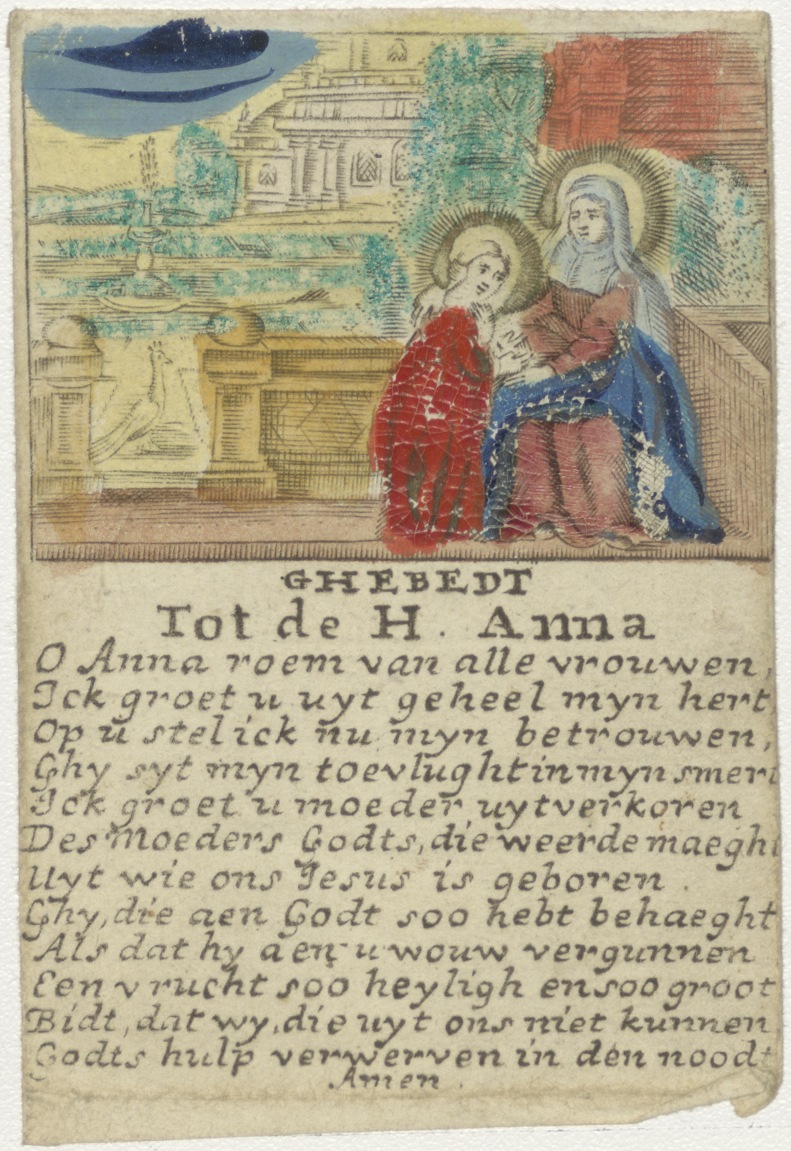 GHEBEDT
Tot de H. Anna
O Anna roem van alle vrouwen,
Ick groet u uyt geheel myn hert
Op u stel ick nu myn betrouwen,
Ghy syt myn toevlught in myn smert
Ick groet u moeder uytverkoren
Des Moeders Godts, die weerde maeght
Uyt wie ons Jesus is geboren.
Ghy, die aen Godt soo hebt behaeght
Als dat hy aen u wouw vergunnen
Een vrucht soo heyligh en soo groot
Bidt, dat wy, die uyt ons niet kunnen
Godts hulp verwerven in den noodt
Amen.